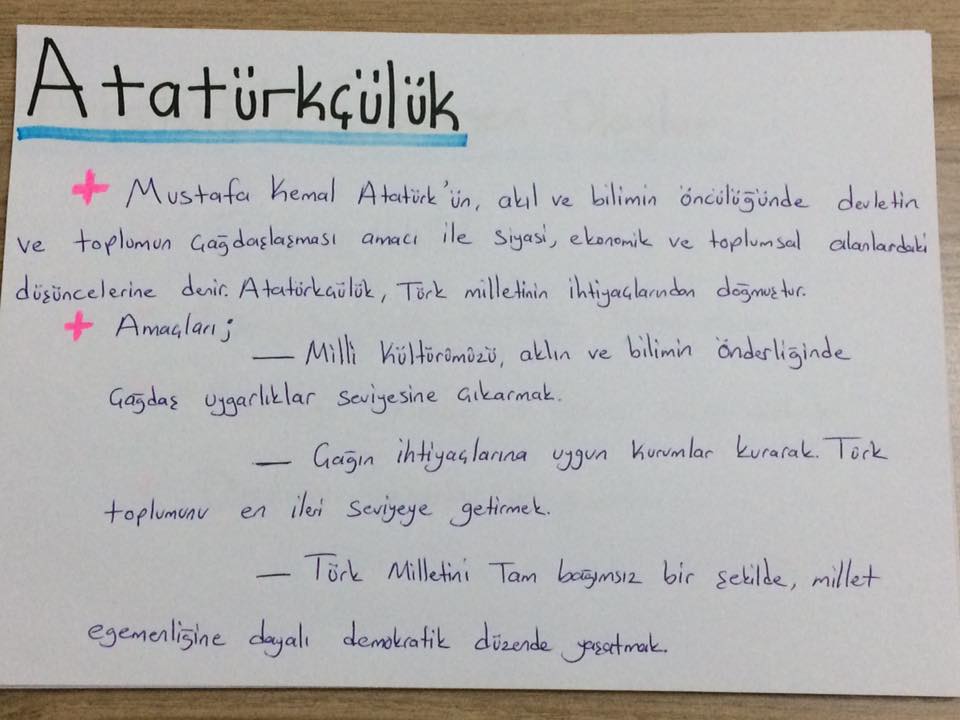 Atatürkçülük
+ Mustafa Kemal Atatürk'ün, akıl ve bilimin öncülüğünde devletin
ve toplumun çağdaşlaşması amacı ile siyasi, ekonomik ve toplumsal alanlardaki
düşüncelerine denir. Atatürkçülük, Türk milletinin ihtiyaçlarından doğmuştur.
+ Amaçları;
— Milli Kültürümüzü, aklın ve bilimin önderliğinde
çağdaş uygarlıklar seviyesine çıkarmak.
— Çağın ihtiyaçlarına uygun kurumlar kurarak. Türk
toplumunu en ileri seviyeye getirmek.
— Türk Milletini Tam bağımsız bir şekilde, millet
egemenliğine dayalı demokratik düzende yaşatmak.